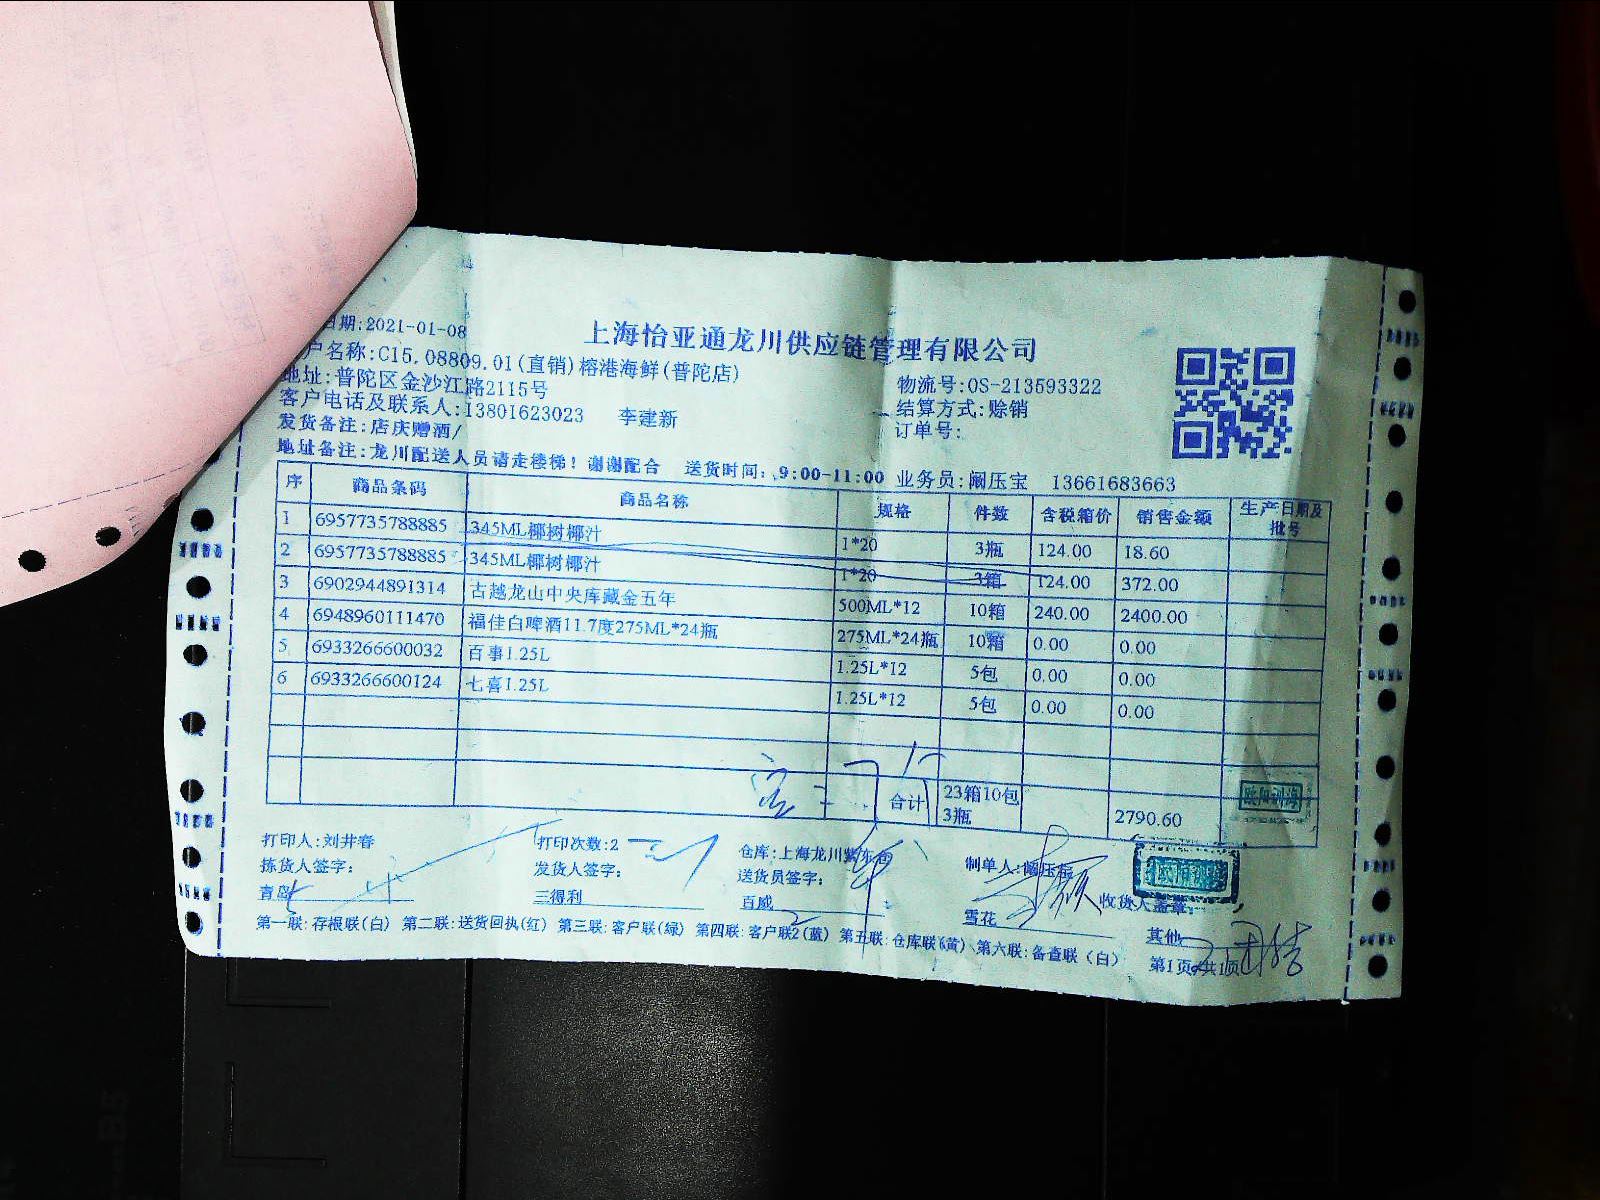 上海怡亚通龙川供应链管理有限公司
日期:2021-01-08
户名称:C15.08809.01(直销)榕港海鲜(普陀店)
物流号:OS-213593322
地址:普陀区金沙江路2115号
结算方式:赊销
客户电话及联系人:13801623023 李建新
订单号:
发货备注:店庆赠酒/
地址备注:龙川配送人员请走楼梯！谢谢配合 送货时间:9:00-11:00 业务员:阚压宝 13661683663
序 商品条码 商品名称 规格 件数 含税箱价 销售金额 生产日期及批号
1 6957735788885 345ML椰树椰汁 1*20 3瓶 124.00 18.60
2 6957735788885 345ML椰树椰汁 1*20 3箱 124.00 372.00
3 6902944891314 古越龙山中央库藏金五年 500ML*12 10箱 240.00 2400.00
4 6948960111470 福佳白啤酒11.7度275ML*24瓶 275ML*24瓶 10箱 0.00 0.00
5 6933266600032 百事1.25L 1.25L*12 5包 0.00 0.00
6 6933266600124 七喜1.25L 1.25L*12 5包 0.00 0.00
合计 23箱10包3瓶 2790.60
打印人:刘井春 打印次数:2 仓库:上海龙川紫东仓 制单人:阚压宝
拣货人签字: 发货人签字: 送货员签字: 收货人盖章:
青岛 三得利 百威 雪花 其他
第一联:存根联(白) 第二联:送货回执(红) 第三联:客户联(绿) 第四联:客户联2(蓝) 第五联:仓库联(黄) 第六联:备查联(白) 第1页/共1页